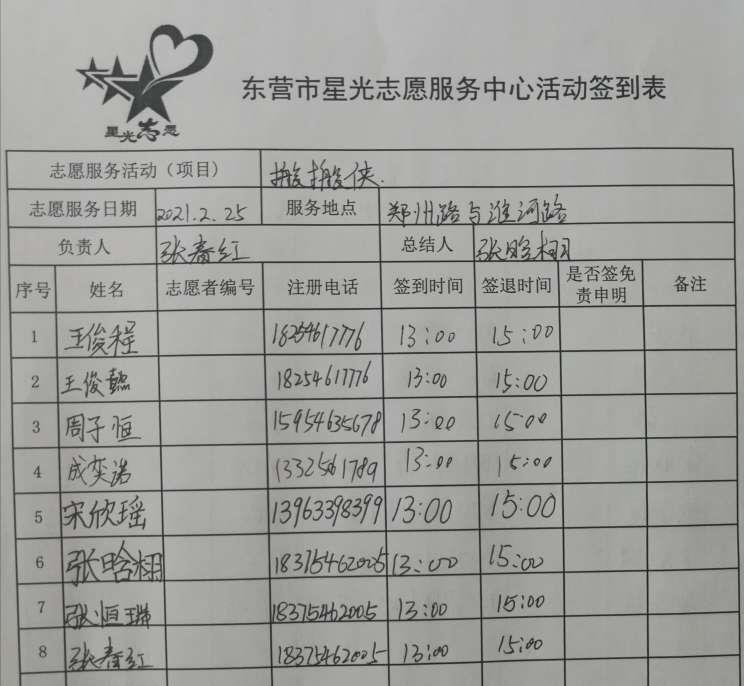 星光志愿
东营市星光志愿服务中心活动签到表
志愿服务活动（项目） 搬搬侠.
志愿服务日期 2021.2.25 服务地点 郑州路与淮河路
负责人 张春红 总结人 张晗栩
序号 姓名 志愿者编号 注册电话 签到时间 签退时间 是否签免责申明 备注
1 王俊程 18254617776 13:00 15:00
2 王俊懿 18254617776 13:00 15:00
3 周子恒 15954635678 13:00 15:00
4 成奕诺 13:00 15:00
5 宋欣瑶 13963398399 13:00 15:00
6 张晗栩 18375462005 13:00 15:00
7 张恒瑞 18375462005 13:00 15:00
8 张春红 18375462005 13:00 15:00